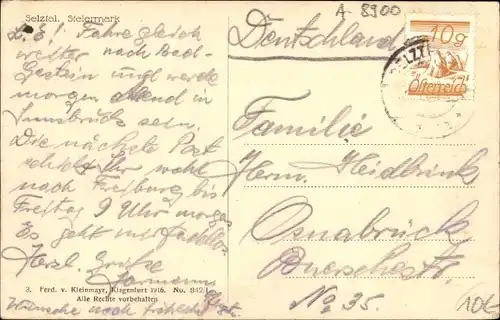 Selztal, Steiermark
L. E! Fahre gleich
weiter nach Bad-
Gastein und werde
morgen Abend in
Innsbruck sein.
Die nächste Post
schickt Ihr wohl
nach Freiburg bis
Freitag 9 Uhr morgens
Es geht mir tadellos.
Herzl. Grüße
Hermann
Wünsche noch frohes
3. Ferd. v. Kleinmayr, Klagenfurt 1916. No. 842
Alle Rechte vorbehalten
A-8900
Deutschland
10g
Österreich
Familie
Herm. Heidbrink
Osnabrück
Buerschestr.
No. 35.
10€